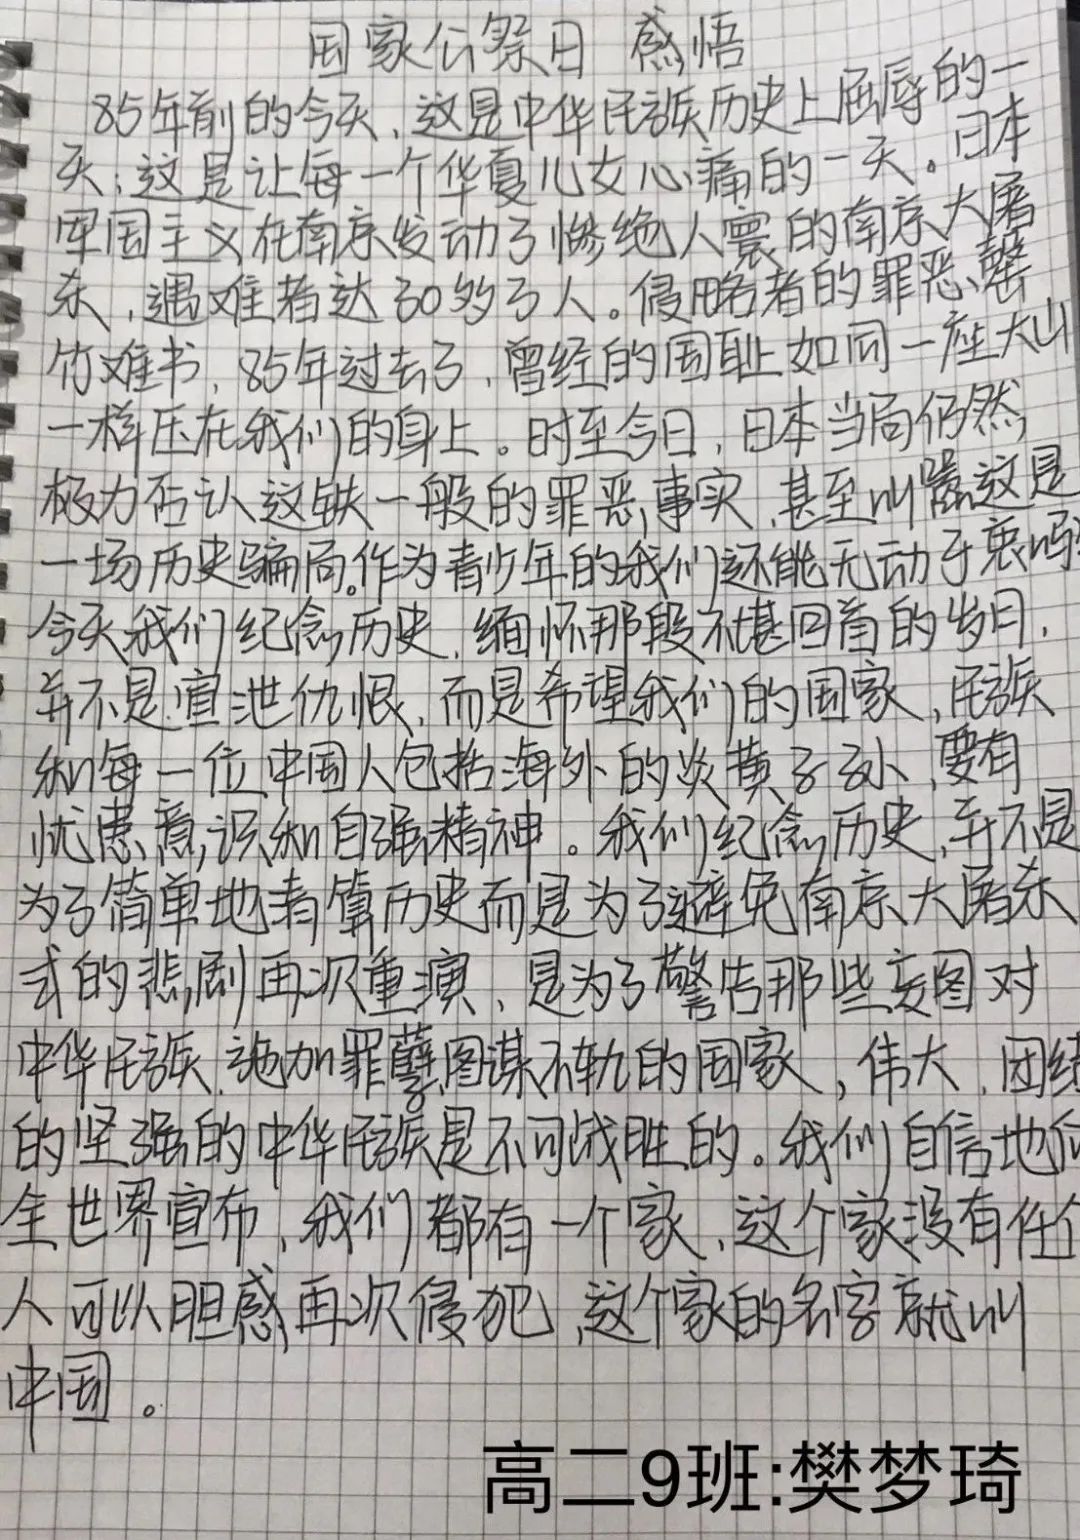 国家公祭日 感悟
85年前的今天，这是中华民族历史上屈辱的一
天；这是让每一个华夏儿女心痛的一天。日本
军国主义在南京发动了惨绝人寰的南京大屠
杀，遇难者达30多万人。侵略者的罪恶罄
竹难书，85年过去了，曾经的国耻如同一座大山
一样压在我们的身上。时至今日，日本当局仍然
极力否认这铁一般的罪恶事实，甚至叫嚣这是
一场历史骗局。作为青少年的我们还能无动于衷吗？
今天我们纪念历史，缅怀那段不堪回首的岁月，
并不是宣泄仇恨，而是希望我们的国家，民族
和每一位中国人包括海外的炎黄子孙，要有
忧患意识和自强精神。我们纪念历史，并不是
为了简单地清算历史而是为了避免南京大屠杀
式的悲剧再次重演，是为了警告那些妄图对
中华民族，施加罪孽，图谋不轨的国家，伟大，团结
的坚强的中华民族是不可战胜的。我们自信地向
全世界宣布，我们都有一个家，这个家没有任何
人可以胆感再次侵犯，这个家的名字就叫
中国。
高二9班:樊梦琦